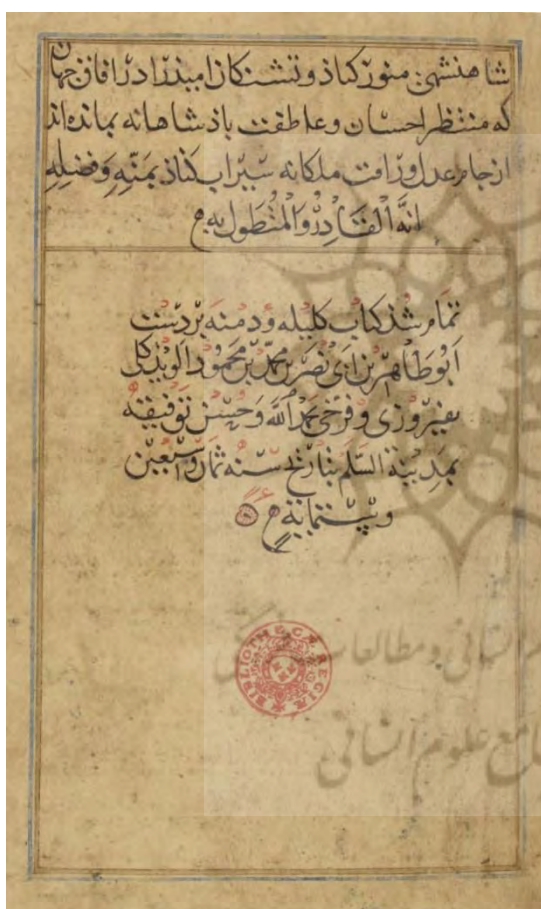 شاهنشهی منور کناذ و تشنکان امیذ را در آفاق جهان
که منتظر احسان و عاطفت باذشاهانه بمانده‌اند
از جام عدل و رافت ملکانه سیراب کناذ بمنه وفضله
انه القادر والمتطول به
تمام شذ کتاب کلیله ودمنه بر دست
ابو طاهر بن ابی نصر بن محمد بن محمود الویذکلی
بفیروزی و فرخی بحمد الله وحسن توفیقه
بمدینة السلم بتاریخ سنه ثمان وسبعین
وستمایة
BIBLIOTHECÆ REGIÆ
انسانی و مطالعات
جامع علوم انسانی